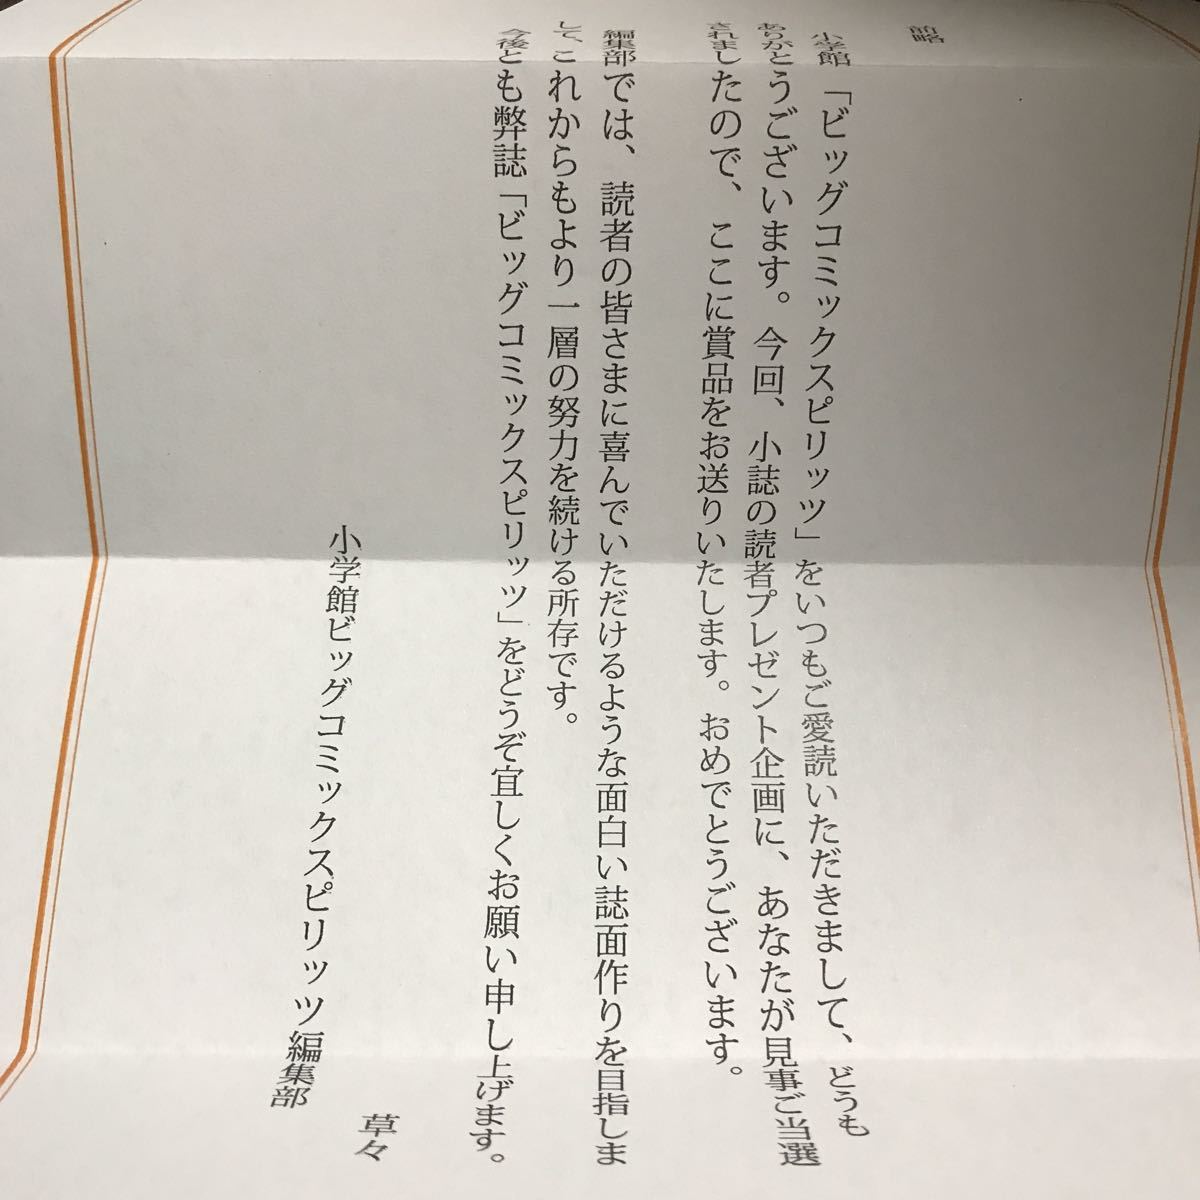 前略
小学館「ビッグコミックスピリッツ」をいつもご愛読いただきまして、どうも
ありがとうございます。今回、小誌の読者プレゼント企画に、あなたが見事ご当選
されましたので、ここに賞品をお送りいたします。おめでとうございます。
編集部では、読者の皆さまに喜んでいただけるような面白い誌面作りを目指しま
して、これからもより一層の努力を続ける所存です。
今後とも弊誌「ビッグコミックスピリッツ」をどうぞ宜しくお願い申し上げます。
草々
小学館ビッグコミックスピリッツ編集部